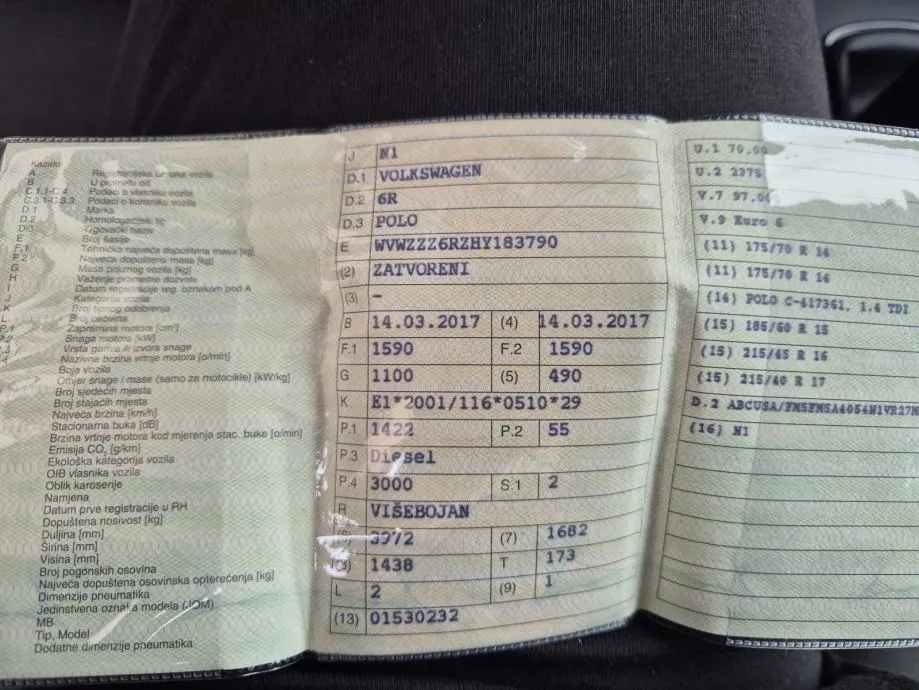 Kazalo
A Registracijska oznaka vozila
B U prometu od
C.1.1-C.4 Podaci o vlasniku vozila
C.3.1-C.3.3 Podaci o korisniku vozila
D.1 Marka
D.2 Homologacijski tip
D.3 Trgovački naziv
E Broj šasije
F.1 Tehnička najveća dopuštena masa [kg]
F.2 Najveća dopuštena masa [kg]
G Masa praznog vozila [kg]
H Važenje prometne dozvole
I Datum registracije reg. oznakom pod A
J Kategorija vozila
K Broj tipnog odobrenja
L Broj osovina
P.1 Zapremina motora [cm³]
P.2 Snaga motora [kW]
P.3 Vrsta goriva ili izvora snage
Nazivna brzina vrtnje motora [o/min]
Boja vozila
Omjer snage i mase (samo za motocikle) [kW/kg]
Broj sjedećih mjesta
Broj stajaćih mjesta
Najveća brzina [km/h]
Stacionarna buka [dB]
Brzina vrtnje motora kod mjerenja stac. buke [o/min]
Emisija CO₂ [g/km]
Ekološka kategorija vozila
OIB vlasnika vozila
Oblik karoserije
Namjena
Datum prve registracije u RH
Dopuštena nosivost [kg]
Duljina [mm]
Širina [mm]
Visina [mm]
Broj pogonskih osovina
Najveća dopuštena osovinska opterećenja [kg]
Dimenzije pneumatika
Jedinstvena oznaka modela (JOM)
MB
Tip. Model
Dodatne dimenzije pneumatika
J N1
D.1 VOLKSWAGEN
D.2 6R
D.3 POLO
E WVWZZZ6RZHY183790
(2) ZATVORENI
(3) -
B 14.03.2017 (4) 14.03.2017
F.1 1590 F.2 1590
G 1100 (5) 490
K E1*2001/116*0510*29
P.1 1422 P.2 55
P.3 Diesel
P.4 3000 S.1 2
R VIŠEBOJAN
(6) 3972 (7) 1682
(8) 1438 T 173
L 2 (9) 1
(13) 01530232
U.1 70.00
U.2 2375
V.7 97.00
V.9 Euro 6
(11) 175/70 R 14
(11) 175/70 R 14
(14) POLO C-417361, 1.4 TDI
(15) 185/60 R 15
(15) 215/45 R 16
(15) 215/40 R 17
D.2 ABCUSA/FM5FM5A4054N1VR27M
(16) N1